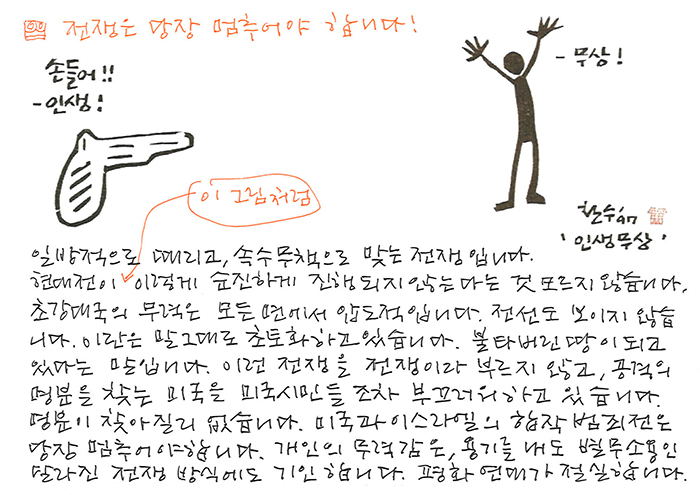 전쟁은 당장 멈추어야 합니다!
손들어!!
-인생!
-무상!
이 그림처럼
철수'97
'인생무상'
일방적으로 때리고, 속수무책으로 맞는 전쟁입니다.
현대전이 이렇게 순진하게 진행되지 않는다는 것 모르지 않습니다.
초강대국의 무력은 모든 면에서 압도적입니다. 전선도 보이지 않습
니다. 이란은 말그대로 초토화하고 있습니다. 불타버린 땅이 되고
있다는 말입니다. 이런 전쟁을 전쟁이라 부르지 않고, 공격의
명분을 찾는 미국을 미국시민들 조차 부끄러워하고 있습니다.
명분이 찾아질리 없습니다. 미국과 이스라엘의 합작 범죄전은
당장 멈추어야합니다. 개인의 무력감은, 용기를 내도 별무소용인
달라진 전쟁 방식에도 기인합니다. 평화연대가 절실합니다.